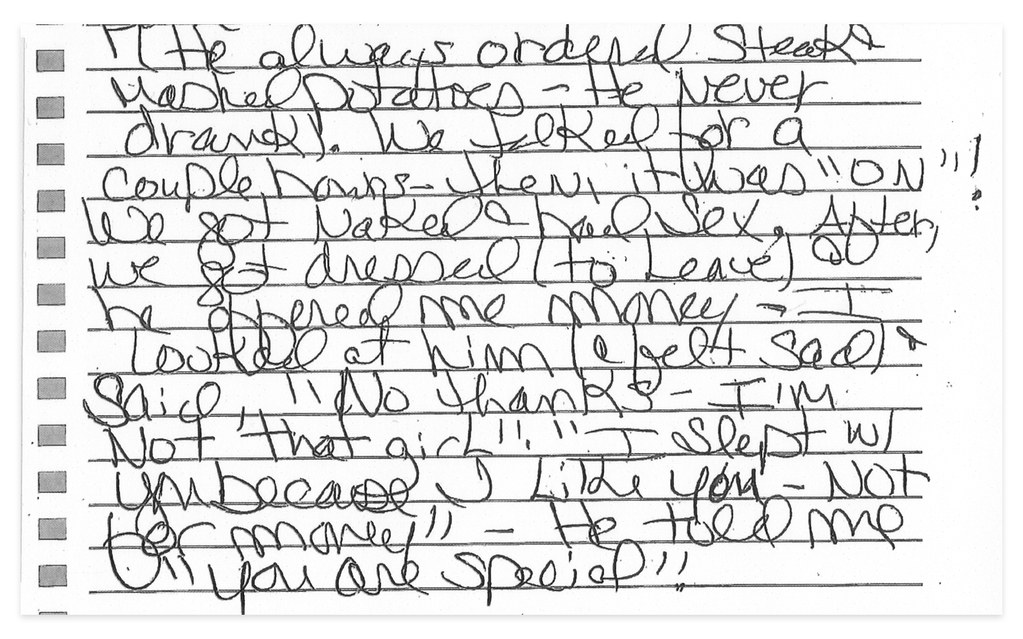 He always ordered Steak &
Mashed Potatoes - He Never
drank!. We talked for a
couple hours - then, it was "ON"!
We got Naked & had Sex. After,
we got dressed (to Leave)
he offered me money - I
looked at him (& felt sad) &
Said, "No thanks - I'm
Not 'that girl'". "I slept w/
you because I Like you - Not
for money" - He told me
"you are special"